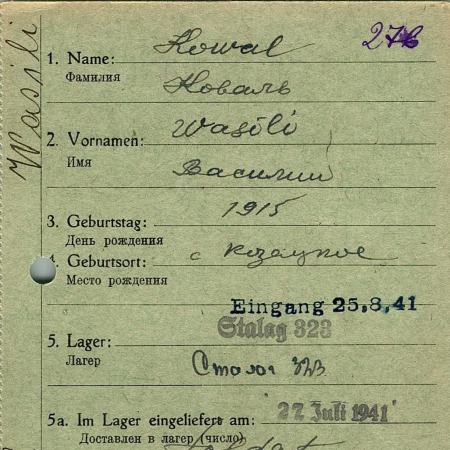 Wasili
1. Name: Kowal 276
Фамилия
Коваль
2. Vornamen: Wasili
Имя
Василий
1915
3. Geburtstag:
День рождения
4. Geburtsort: с
Место рождения
Eingang 25.8.41
Stalag 323
5. Lager:
Лагер
Сталаг 323
5a. Im Lager eingeliefert am: 27 Juli 1941
Доставлен в лагер (число)
Soldat